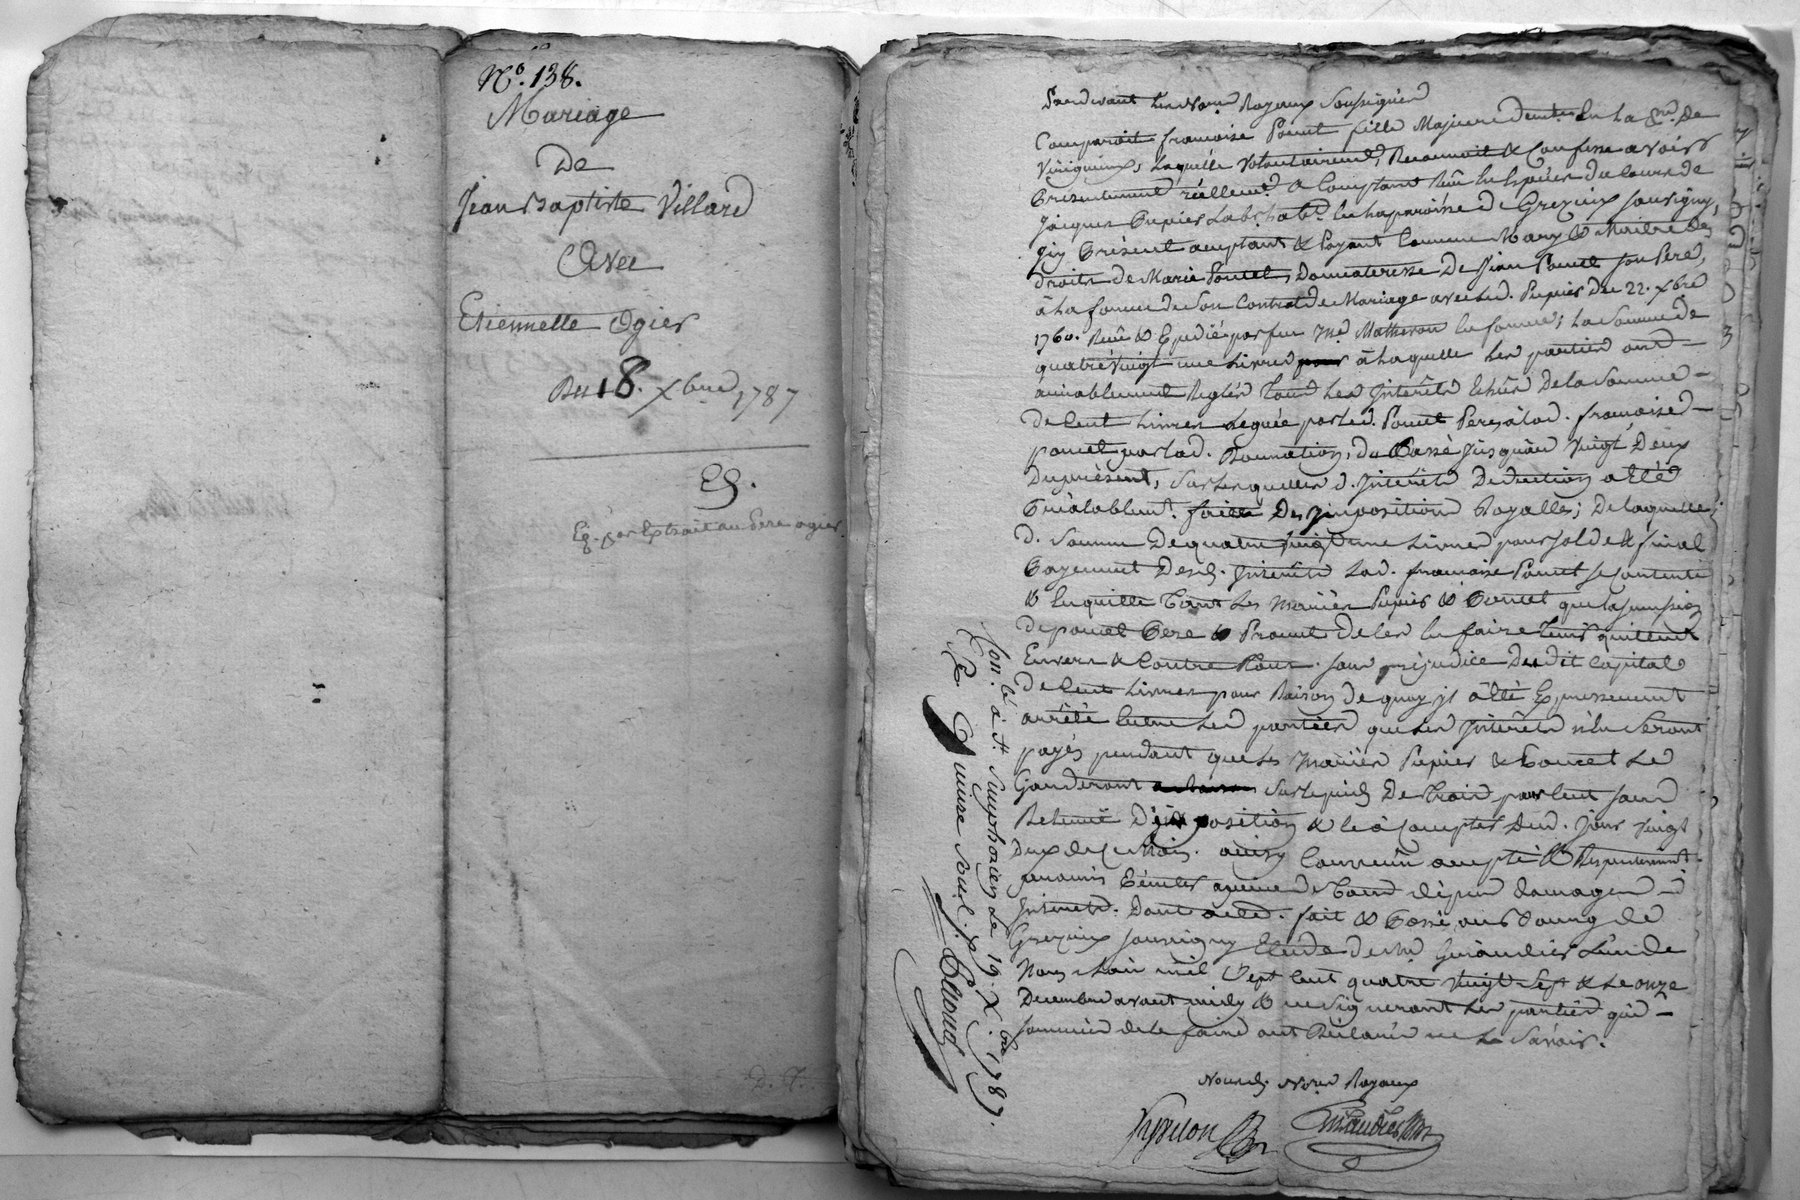 N.º 138.
Mariage
De
Jean Baptiste Villard
Avec
Etiennette Ogier
Du 18. Xbre 1787
Eg.
Eg. par Extrait au Pere ogier
Pardevant Les Nores Royaux Soussignés
Comparoit françoise Poncet fille Majeure de La
Laquelle volontairement, Reconnoit & Confesse avoir
Presentement réellement & Comptant Reçu En Espèces du Cours de
Jacques Pupier de la paroisse de Grezieux Souvigny,
jcy Présent acceptant & Payant Comme Mary & Maitre des
droits de Marie Poncet, Donnateresse De Jean Poncet Son Pere,
à La forme de Son Contrat de Mariage avec led. Pupier du 22. Xbre
1760. Reçu & Expedié par feu Me Matheron En forme; La Somme de
quatre vingt une Livres à Laquelle Les parties ont
amiablement Reglés Tous Les Interêts Echus De la Somme
de Cent Livres Leguée par led. Poncet Pere à lad. françoise
poncet par lad. Donnation, du Passé jusqu'au vingt Deux
Du présent, Sur Lesquels d. Interêts Deduction a Eté
Préalablemt. faitte Des Impositions Royalles; De laquelle
d. Somme De quatre vingt une Livres pour Solde & final
Payement Desd. Interêts Lad. françoise Poncet Se Contente
& En quitte Tant Les Mariés Pupier & Poncet que
poncet Pere & Promet de les En faire Tenir quittes
Envers & Contre Tous. Sans préjudice Du dit Capital
De Cent Livres pour Raison de quoy jl a Eté Expressement
arrêté Entre Les parties que Les Interêts n'En Seront
payés pendant que Les Mariés Pupier & Poncet Le
Garderont Sur le pied De Trois par Cent Sans
Retenüe D'jmposition & Ce à Compter Dud. jour vingt
Deux de Ce Mois. ainsy Convenu accepté & Respectivement
promis à peine de Tous dépens Damages &
Interêts. Dont acte. fait & Passé au Bourg de
Grezieux Souvigny Etude de Me Giraudier L'un de
Nous L'an mil Sept Cent quatre vingt Sept & Le onze
Decembre avant midy & ne Signeront Les parties qui
Sommées de le faire ont Déclaré ne Le Savoir.
Nousd. Nores Royaux
Con.lé à St. Simphorien Le 19. Xbre 1787.
R. Quinze sous